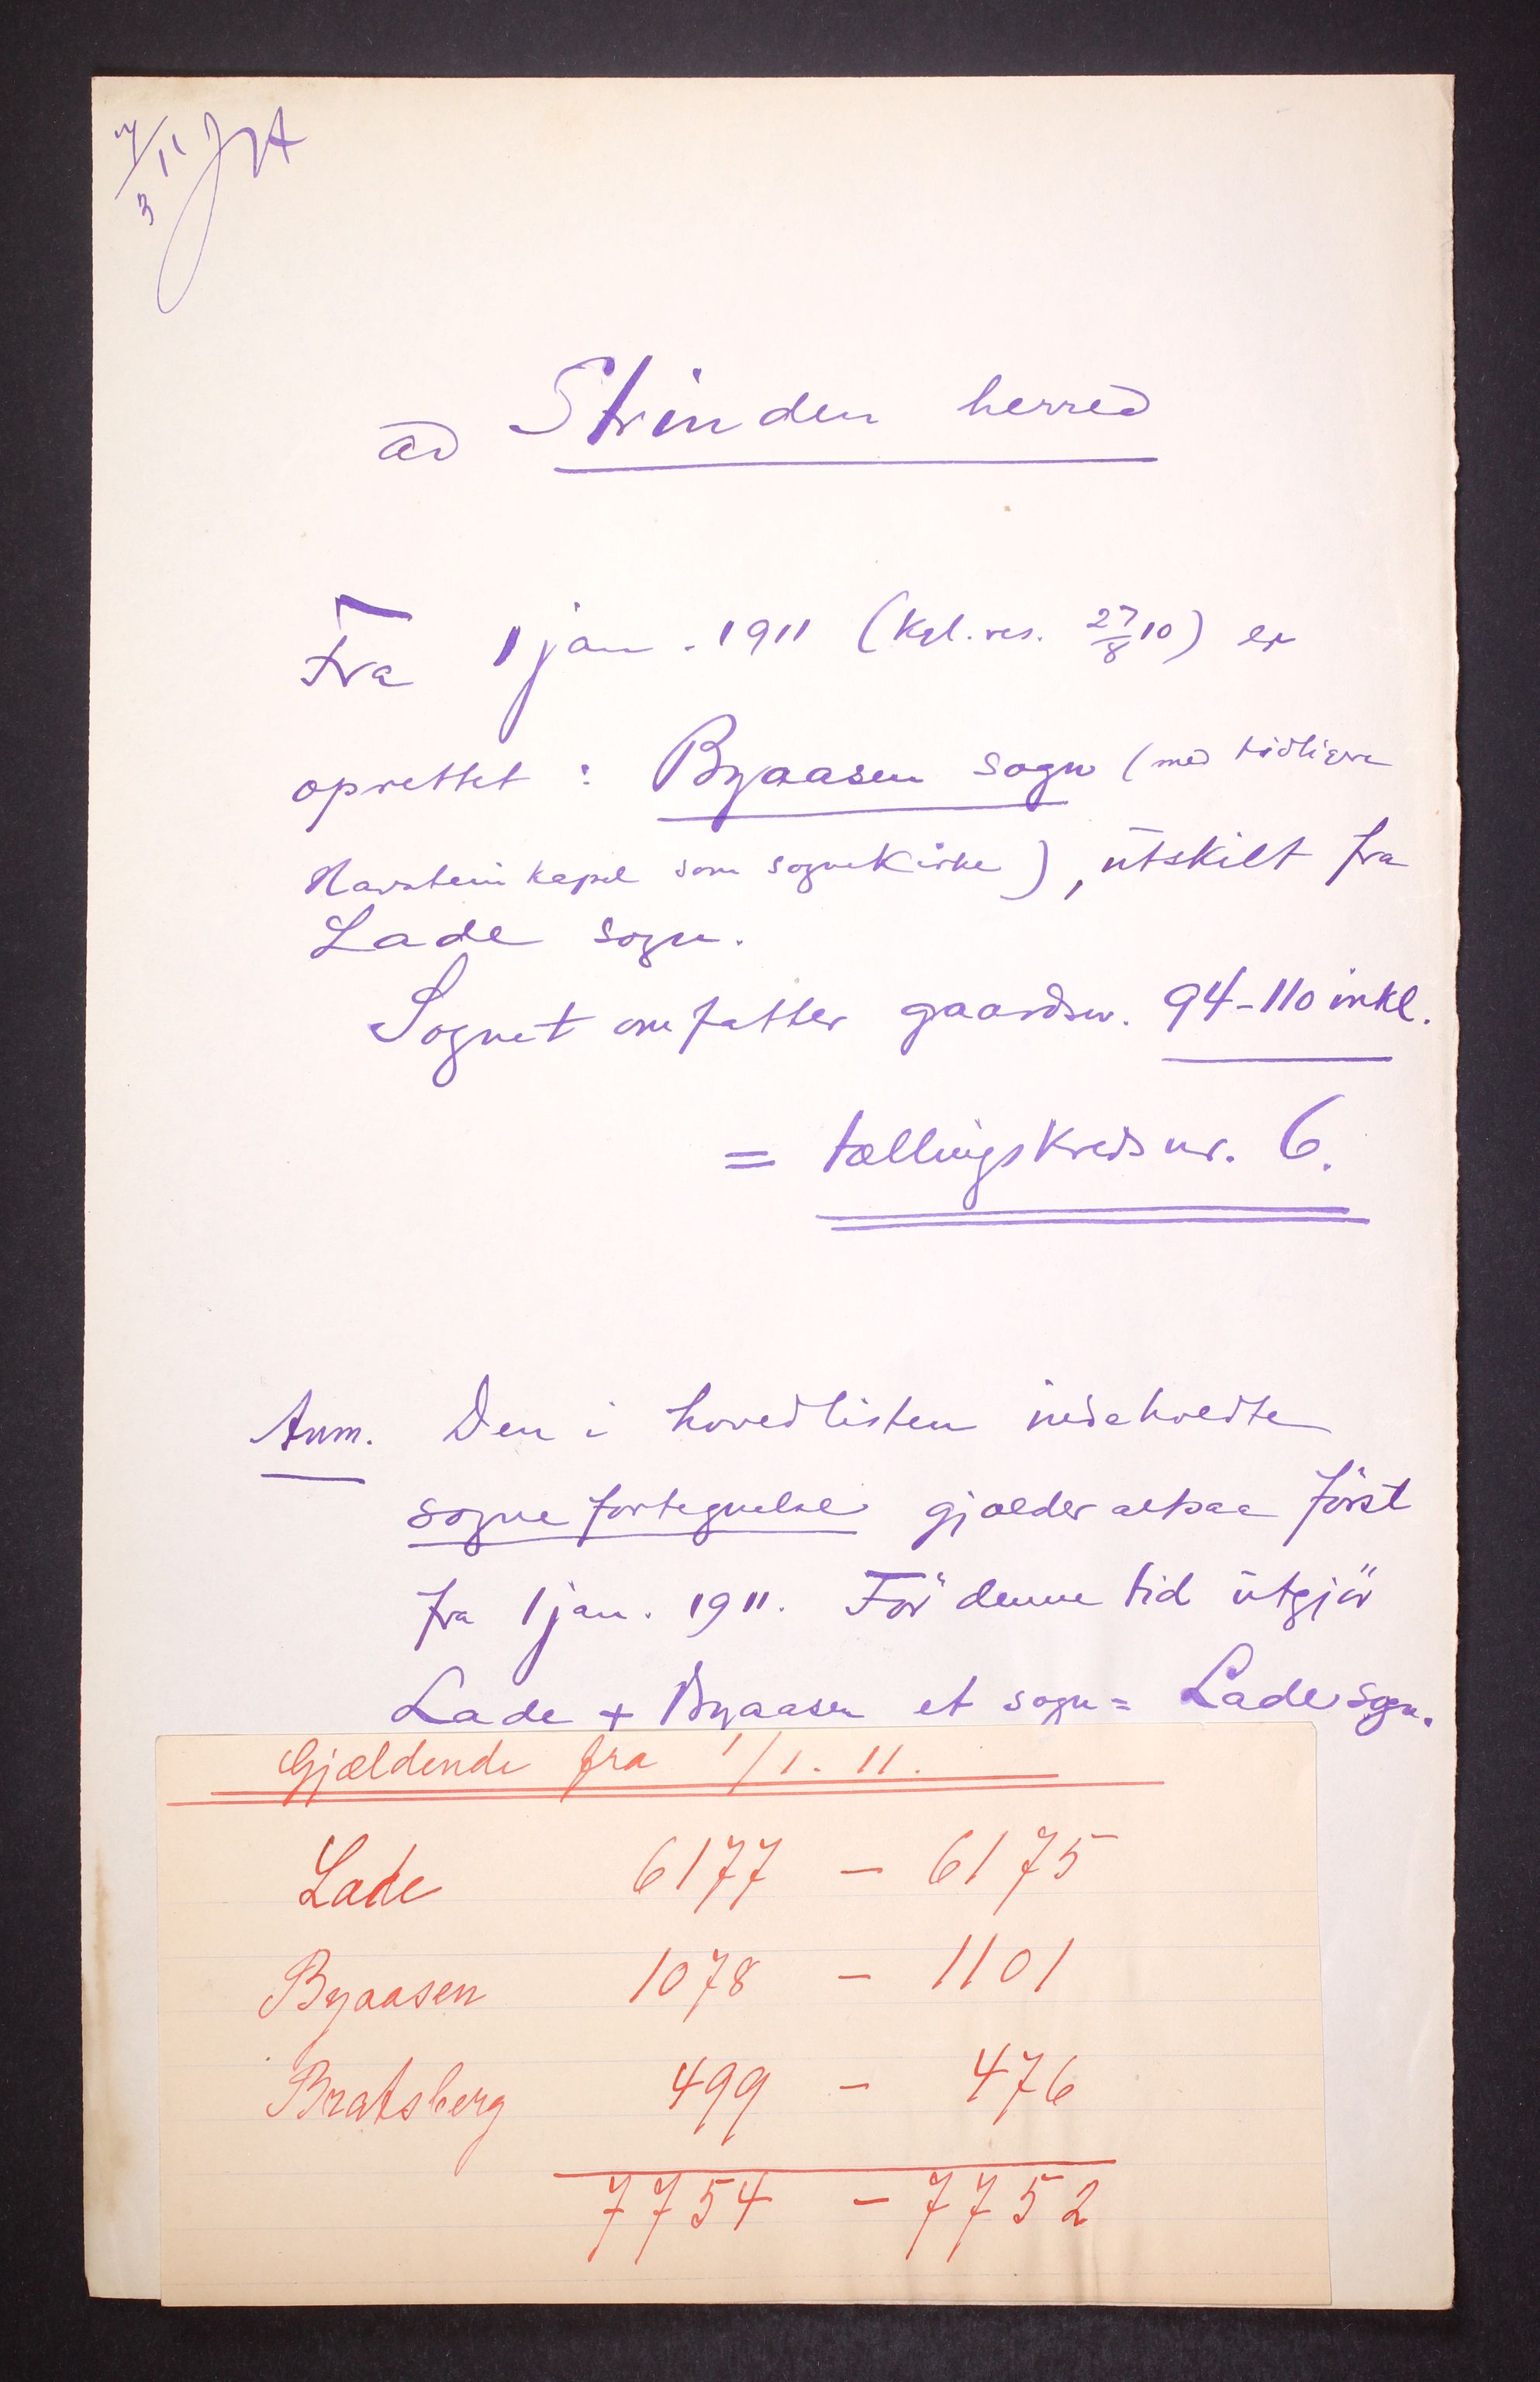 7/3 11
ad Strinden herred
Fra 1 jan. 1911 (kgl. res. 27/8 10) er
oprettet : Byaasen sogn (med tidligere
Havstein kapel som sognekirke), utskilt fra
Lade sogn.
Sognet omfatter gaardsnr. 94-110 inkl.
= tællingskreds nr. 6.
Anm. Den i hovedlisten indeholdte
sognefortegnelse gjælder altsaa först
fra 1 jan. 1911. För denne tid utgjör
Lade + Byaasen et sogn = Lade sogn.
Gjældende fra 1/1. 11.
Lade 6177 - 6175
Byaasen 1078 - 1101
Bratsberg 499 - 476
7754 - 7752